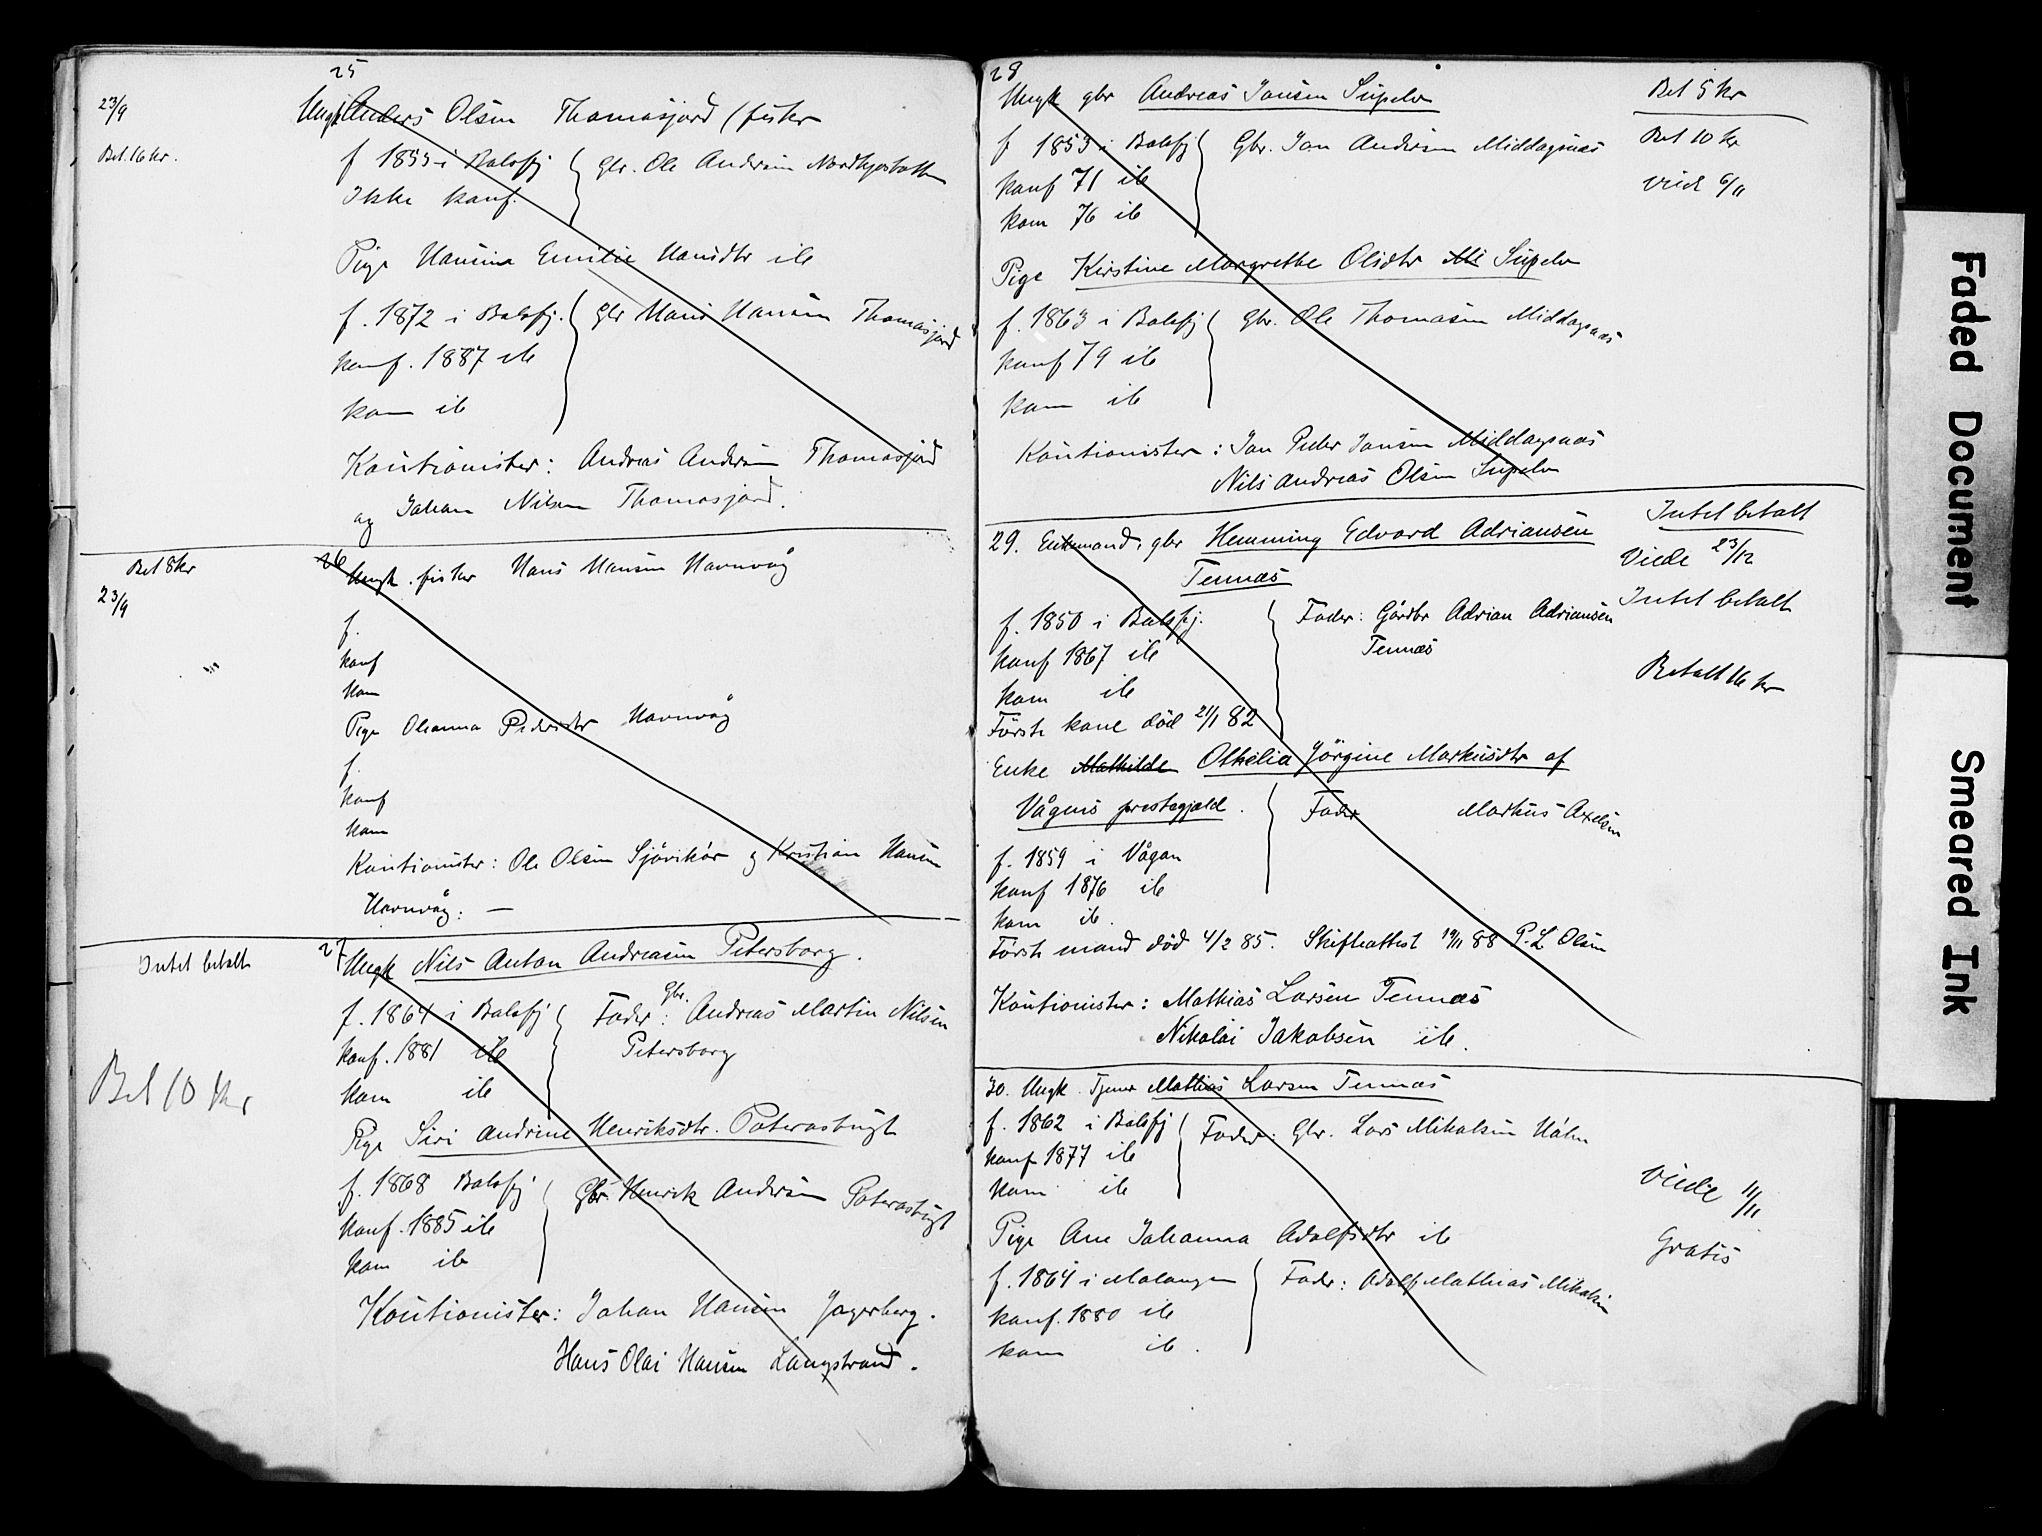 25
23/9
Ungk Anders Olsen Thomasjord (fisker
Bet. 16 kr.
f 1853 i Balsfj
Gbr. Ole Andersen
Ikke konf.
Pige Hansine Emilie Hansdtr ib
f. 1872 i Balsfj.
Gbr Hans Hansen Thomasjord
konf. 1887 ib
kom ib
Kautionister: Andreas Andersen Thomasjord
og Johan Nilsen Thomasjord.
26
Bet 8 kr
23/9
Ungk. fisker Hans Hansen Havnvåg
f.
konf
kom
Pige Oleanna Pedersdtr Havnvåg
f.
konf
kom
Kautionister: Ole Olsen Sjøvikør og Kristian Hansen
Havnvåg: —
27
Intet betalt
Ungk Nils Anton Andreasen Petersborg.
f. 1864 i Balsfj
Fader: Gbr. Andreas Martin Nilsen
konf. 1881 ib
Petersborg
kom ib
Bet 10 kr
Pige Siri Andrine Henriksdtr. Paterasbugt
f. 1868 Balsfj
Gbr Henrik Andersen Paterasbugt
konf. 1885 ib
kom ib
Kautionister: Johan Hansen Jagerberg.
Hans Olai Hansen Langstrand.
28
Ungk gbr Andreas Jansen Süpelv
Bet 5 kr
f 1853 i Balsfj
Gbr. Jan Andersen Middagsnæs
Bet 10 kr
konf 71 ib
Viede 6/11
kom 76 ib
Pige Kirstine Margrethe Olsdtr Mi Süpelv
f. 1863 i Balsfj
Gbr. Ole Thomasen Middagsnæs
konf 79 ib
kom ib
Kautionister: Jan Peder Jansen Middagsnæs
Nils Andreas Olsen Süpelv
29. Enkemand, gbr Hemming Edvard Adriansen
Tennæs
Intet betalt
Viede 23/12
Intet betalt
f. 1850 i Balsfj.
Fader: Gårdbr Adrian Adriansen
Tennæs
konf 1867 ib
kom ib
Betalt 16 kr
Første kone död 21/1 82
Enke Mathilde Othelia Jörgine Markusdtr af
Vågens prestegjeld.
Fader Markus Axelsen
f. 1859 i Vågan
konf 1876 ib
kom ib.
Første mand död 4/2 85. Skifteattest 19/11 88 P. L Olsen
Kautionister: Mathias Larsen Tennæs
Nikolai Jakobsen ib.
30. Ungk. Tjener Mathias Larsen Tennæs
f. 1862 i Balsfj
Fader: Gbr. Lars Mikalsen
konf 1877 ib
kom ib
Viede 11/11
Pige Ane Johanna Adolfsdtr ib
Gratis
f. 1864 i Malangen
Fader: Adolf Mathias Mikalsen
konf. 1880 ib
kom ib.
Faded Document
Smeared Ink